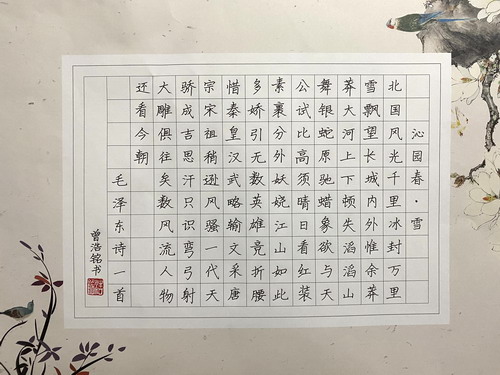 沁园春·雪
北国风光千里冰封万里
雪飘望长城内外惟余莽
莽大河上下顿失滔滔山
舞银蛇原驰蜡象欲与天
公试比高须晴日看红装
素裹分外妖娆江山如此
多娇引无数英雄竞折腰
惜秦皇汉武略输文采唐
宗宋祖稍逊风骚一代天
骄成吉思汗只识弯弓射
大雕俱往矣数风流人物
还看今朝
毛泽东诗一首
曾浩铭书